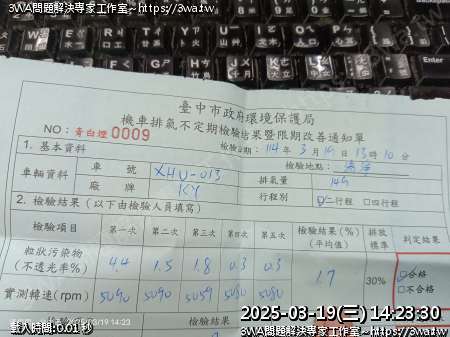 3WA問題解決專家工作室~https://3wa.tw
3WA問題解決專家工作室~https://3wa.tw
臺中市政府環境保護局
機車排氣不定期檢驗結果暨限期改善通知單
NO：青白煙0009
檢驗日期：114年3月19日13時10分
1. 基本資料
檢驗地點：
車輛資料 車號 XHU-013 排氣量 149
廠牌 KY 行程別 ☑二行程 □四行程
2. 檢驗結果（以下由檢驗人員填寫）
檢驗項目 第一次 第二次 第三次 第四次 第五次 檢驗結果(%)(平均值) 排放標準 判定結果
粒狀污染物(不透光率%) 4.4 1.5 1.8 0.3 0.3 1.7 30% ☑合格 □不合格
實測轉速(rpm) 5090 5090 5059 5080 5080
2025-03-19(三) 14:23:30
載入時間:0.01 秒
2025/03/19 14:23
檢驗結果
3WA問題解決專家工作室~https://3wa.tw